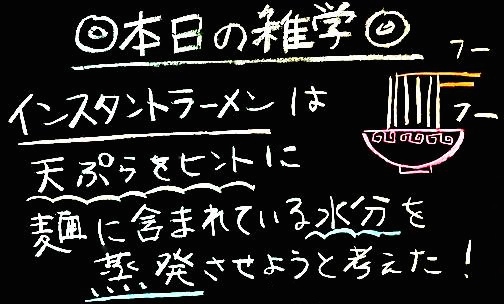 ◎本日の雑学◎
フー
フー
インスタントラーメンは
天ぷらをヒントに
麺に含まれている水分を
蒸発させようと考えた!